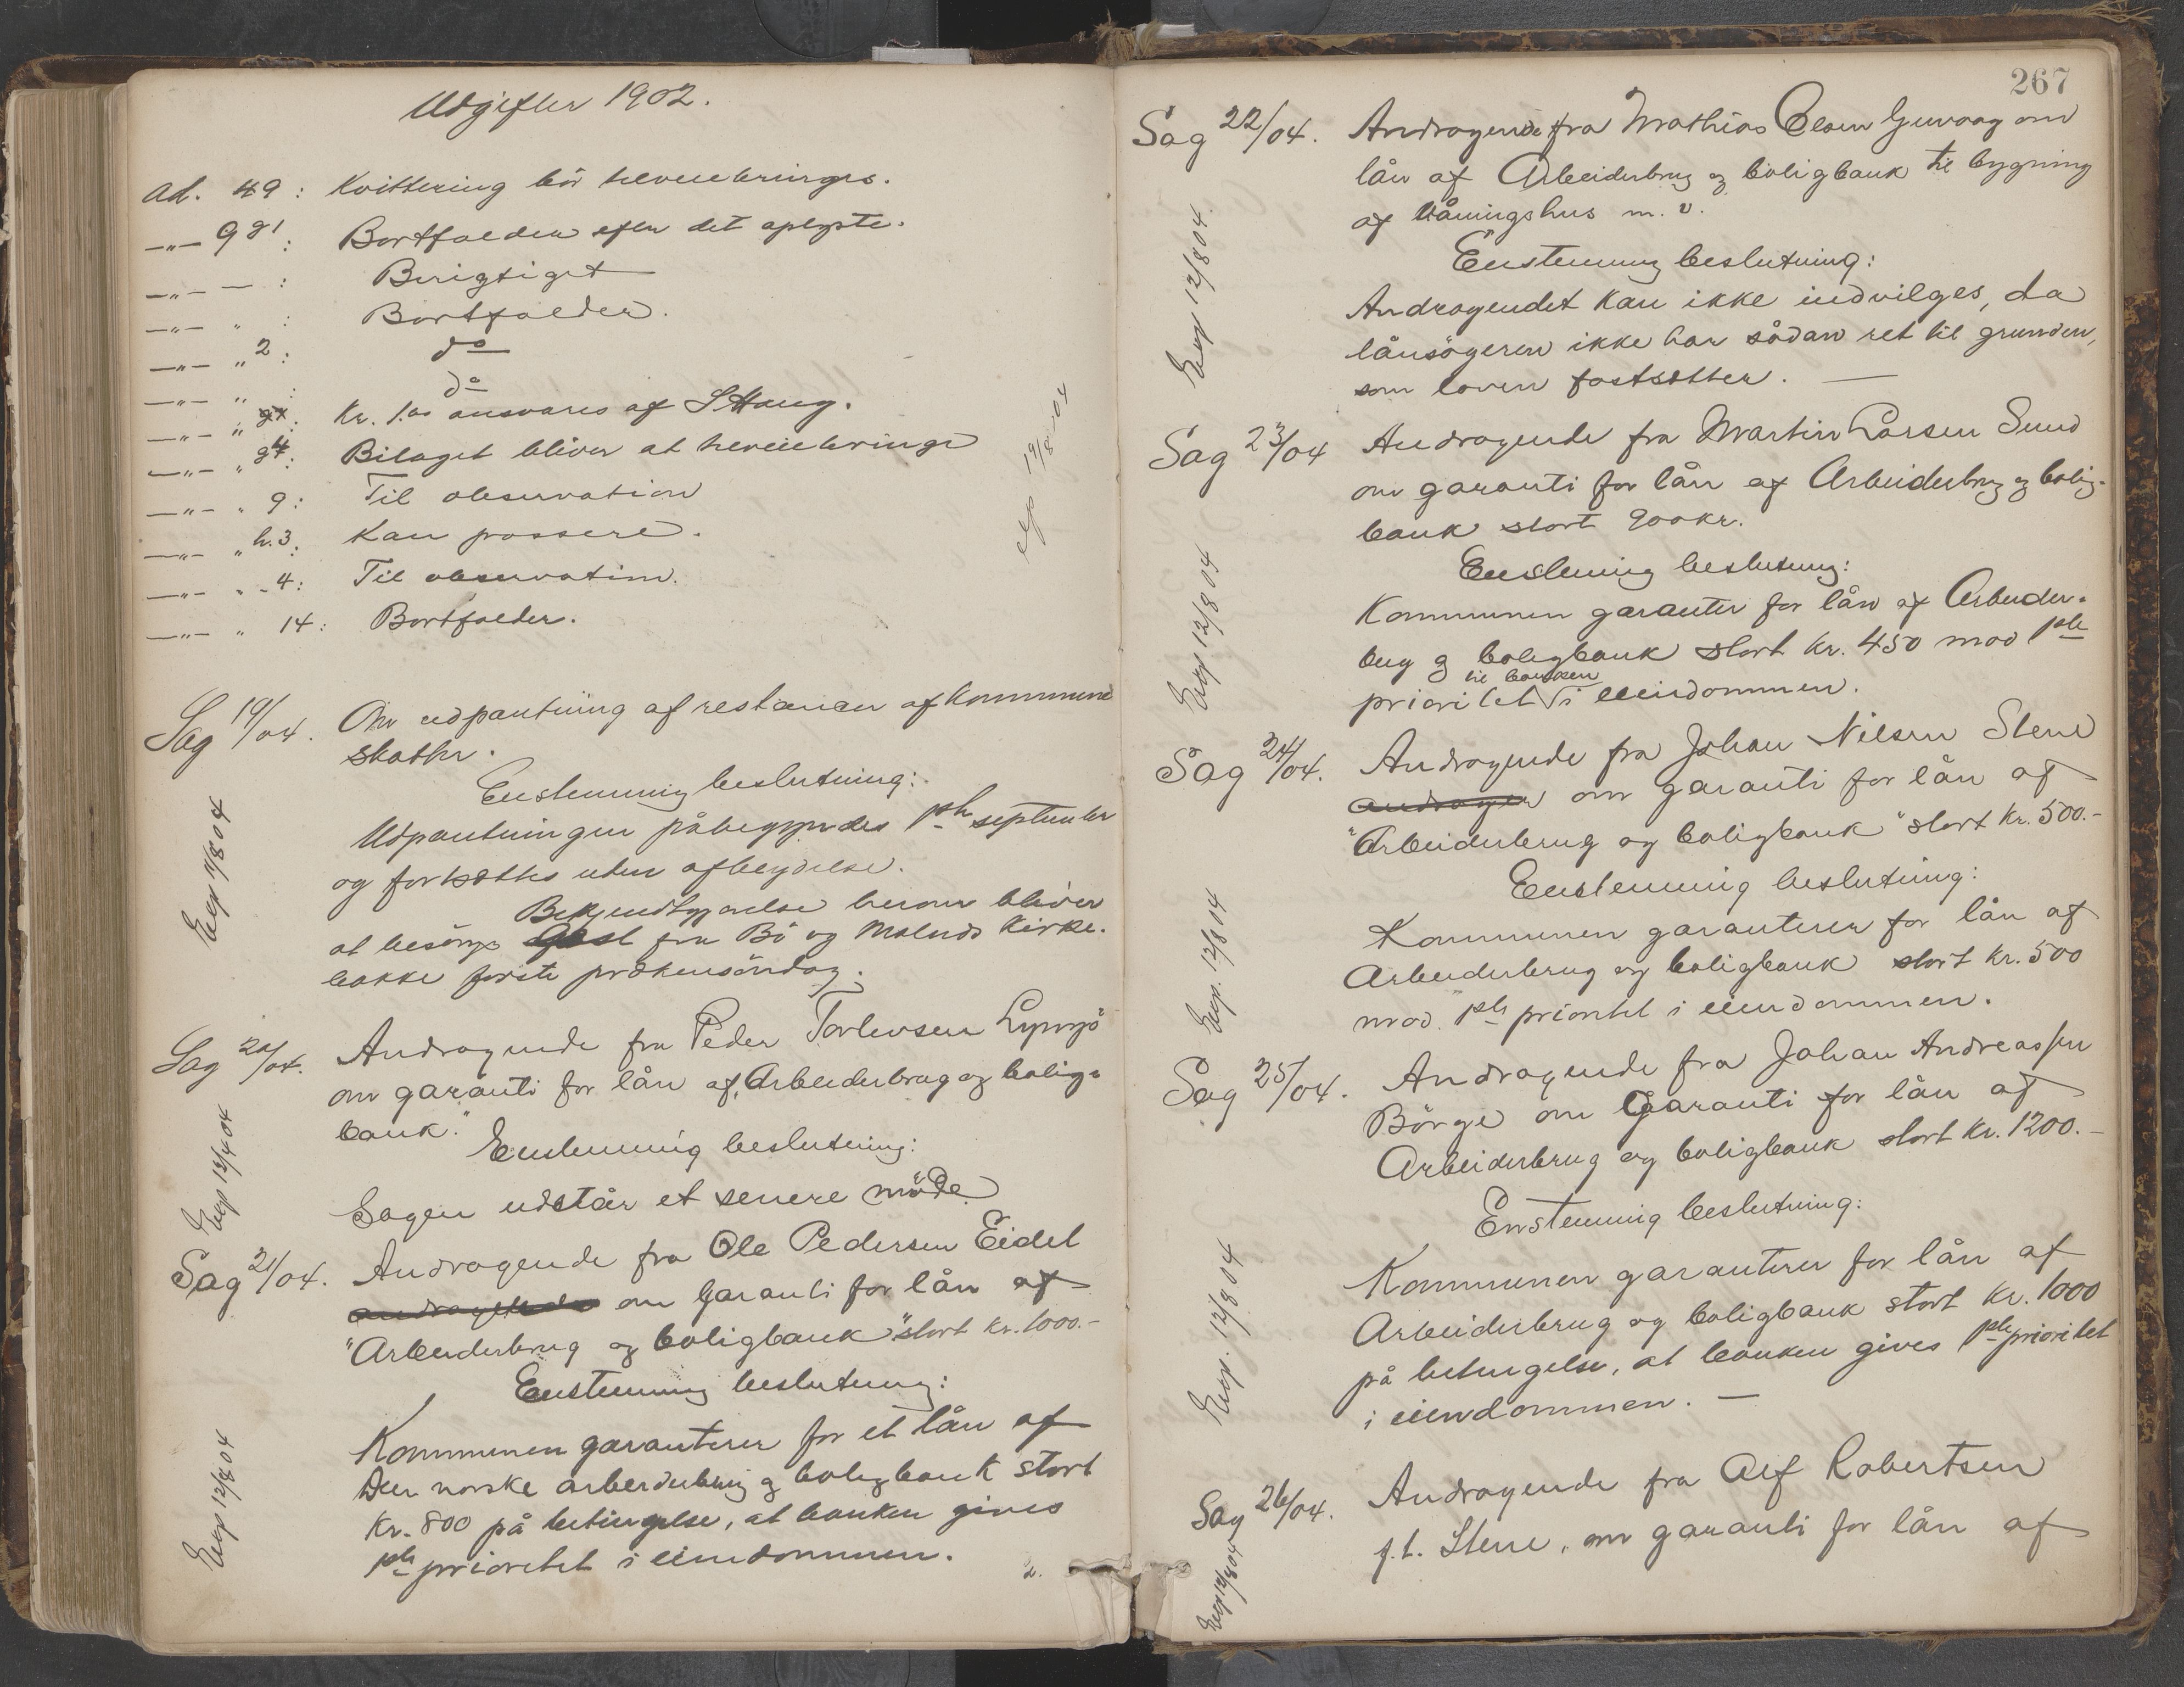 Udgifter 1902.
ad. 49: Kvittering bör tilveiebringes.
—"— 9 g1: Bortfalder efter det oplyste.
—"— — : Berigtiget
—"— " : Bortfalder.
—"— " 2: do
—"— " : do
—"— " : Kr. 1.00 ansvares af S. Haug.
—"— " g4: Bilaget bliver at tilveiebringe
—"— " 9: Til observation
—"— " h.3: Kan passere.
—"— " - 4: Til observation.
—"— " 14: Bortfalder.
exp 19/8-04
Sag 19/04. Om udpantning af restancer af kommune
skatter.
Enstemmig beslutning:
Udpantningen påbegyndes 1ste september
og fortsættes uden afbrydelse.
Bekjendtgjørelse herom bliver
at besörge fra Bö og Malnes Kirke-
bakke förste prækensöndag.
Exp 12/8 04
Sag 20/04. Andragende fra Peder Torlevsen Lynsjö
om garanti for lån af "Arbeiderbrug og bolig-
bank."
Enstemmig beslutning:
Sagen udstår et senere möde
Exp 12/4 04
Sag 21/04. Andragende fra Ole Pedersen Eidet
andragende om Garanti for lån af
"Arbeiderbrug og boligbank" stort kr. 1000.-
Enstemmig beslutning:
Kommunen garanterer for et lån af
Den norske arbeiderbrug og boligbank stort
Kr. 800 på betingelse, at banken gives
1ste prioritet i eiendommen.
Exp 12/8 04
2.
267
Sag 22/04. Andragende fra Mathias Olsen Guvaag om
lån af Arbeiderbrug og boligbank til bygning
af Våningshus m. v.
Enstemmig beslutning:
Andragendet kan ikke indvilges, da
lånsögeren ikke har sådan ret til grunden,
som loven fastsætter. —
Exp 12/8 04.
Sag 23/04 Andragende fra Martin Larsen Sund
om garanti for lån af Arbeiderbrug og bolig-
bank stort 900 kr.
Enstemmig beslutning:
Kommunen garanter for lån af Arbeider-
brug og boligbank stort kr. 450 mod 1ste
til banken
prioritet i eiendommen.
Exp 12/8 04
Sag 24/04. Andragende fra Johan Nilsen Stene
andragen om garanti for lån af
"Arbeiderbrug og boligbank" stort kr. 500.-
Enstemmig beslutning:
Kommunen garanterer for lån af
Arbeiderbrug og boligbank stort kr. 500
mod 1ste prioritet i eiendommen.
Exp. 12/8 04
Sag 25/04. Andragende fra Johan Andreassen
Börge om Garanti for lån af
Arbeiderbrug og boligbank stort kr. 1200.-
Enstemmig beslutning:
Kommunen garanterer for lån af
Arbeiderbrug og boligbank stort kr. 1000
på betingelse, at banken gives 1ste prioritet
i eiendommen. —
Exp. 12/8 04
Sag 26/04. Andragende fra Alf Robertsen
f.t. Stene, om garanti for lån af
Exp 12/8 04